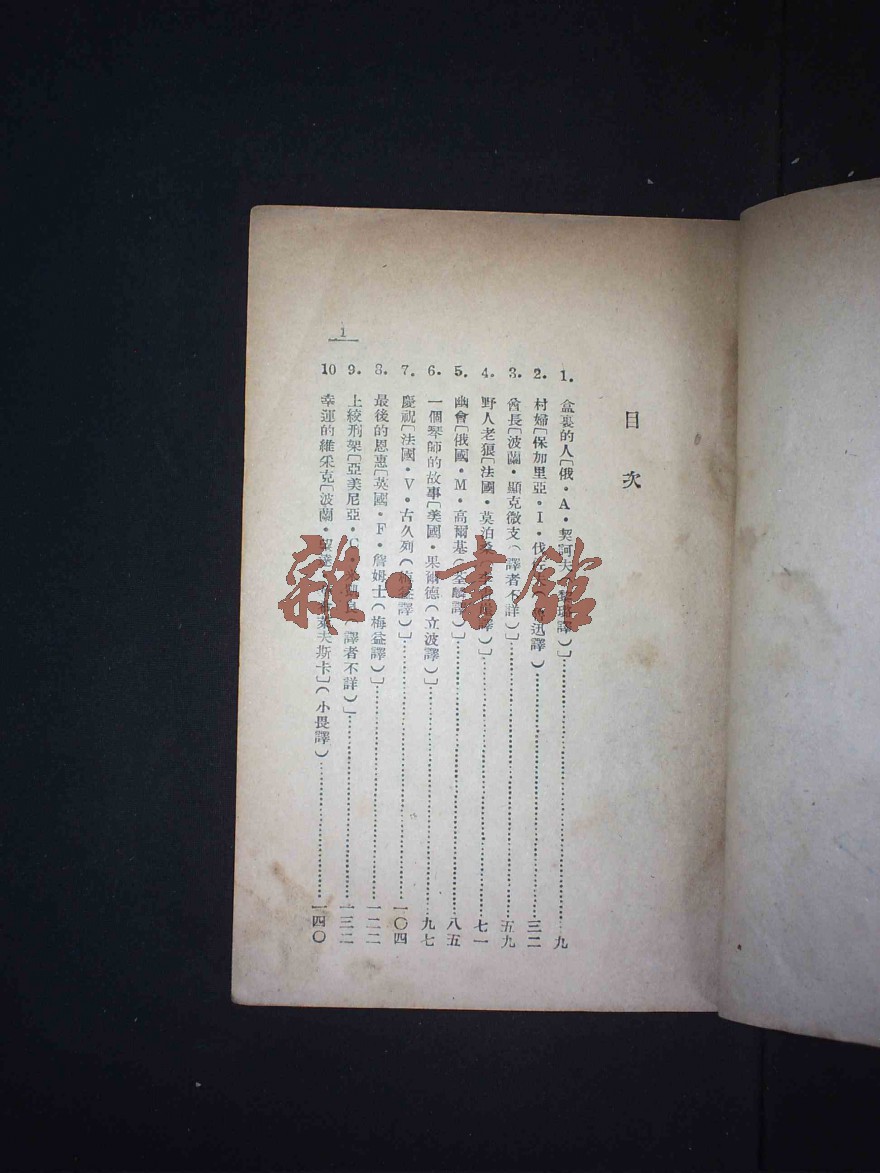 目次
1. 盒裏的人〔俄・A・契訶夫 譯)〕……九
2. 村婦〔保加里亞・I・伐 迅譯)……三二
3. 酋長〔波蘭・顯克微支(譯者不詳)〕……五九
4. 野人老狼〔法國・莫泊桑 譯)〕……七一
5. 幽會〔俄國・M・高爾基(荃麟譯)〕……八五
6. 一個琴師的故事〔美國・果爾德(立波譯)〕……九七
7. 慶祝〔法國・V・古久列(梅益譯)〕……一〇四
8. 最後的恩惠〔英國・F・詹姆士(梅益譯)〕……一二二
9. 上絞刑架〔亞美尼亞・C・ (譯者不詳)〕……一三二
10 幸運的維采克〔波蘭・ 萊夫斯卡〕(小畏譯)……一四〇
1
雜・書館